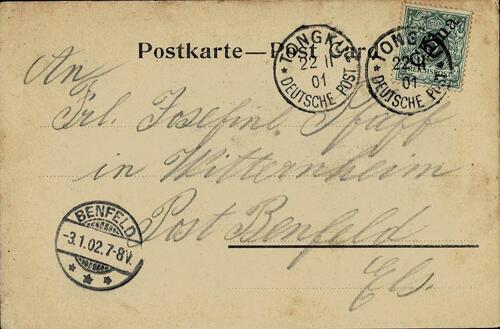 Postkarte — Post Card
TONGKU
22 11
01
* DEUTSCHE POST *
TONGKU
22 11
01
* DEUTSCHE POST *
China
REICHSPOST
An
Frl. Josefine Pfaff
in Witternheim
Post Benfeld
Els.
BENFELD
-3.1.02.7-8V.
* * *